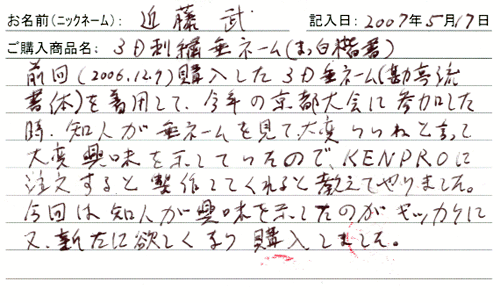 お名前(ニックネーム): 近藤 武 記入日: 2007年5月17日
ご購入商品名: 3D刺繍垂ネーム(まっ白楷書)
前回(2006.12.9)購入した3D垂ネーム(勘亭流
書体)を着用して、今年の京都大会に参加した
時、知人が垂ネームを見て、大変いいねと言って
大変興味を示していたので、KENPROに
注文すると製作してくれると教えてやりました。
今回は知人が興味を示したのがキッカケに
又、新たに欲しくなり購入しました。